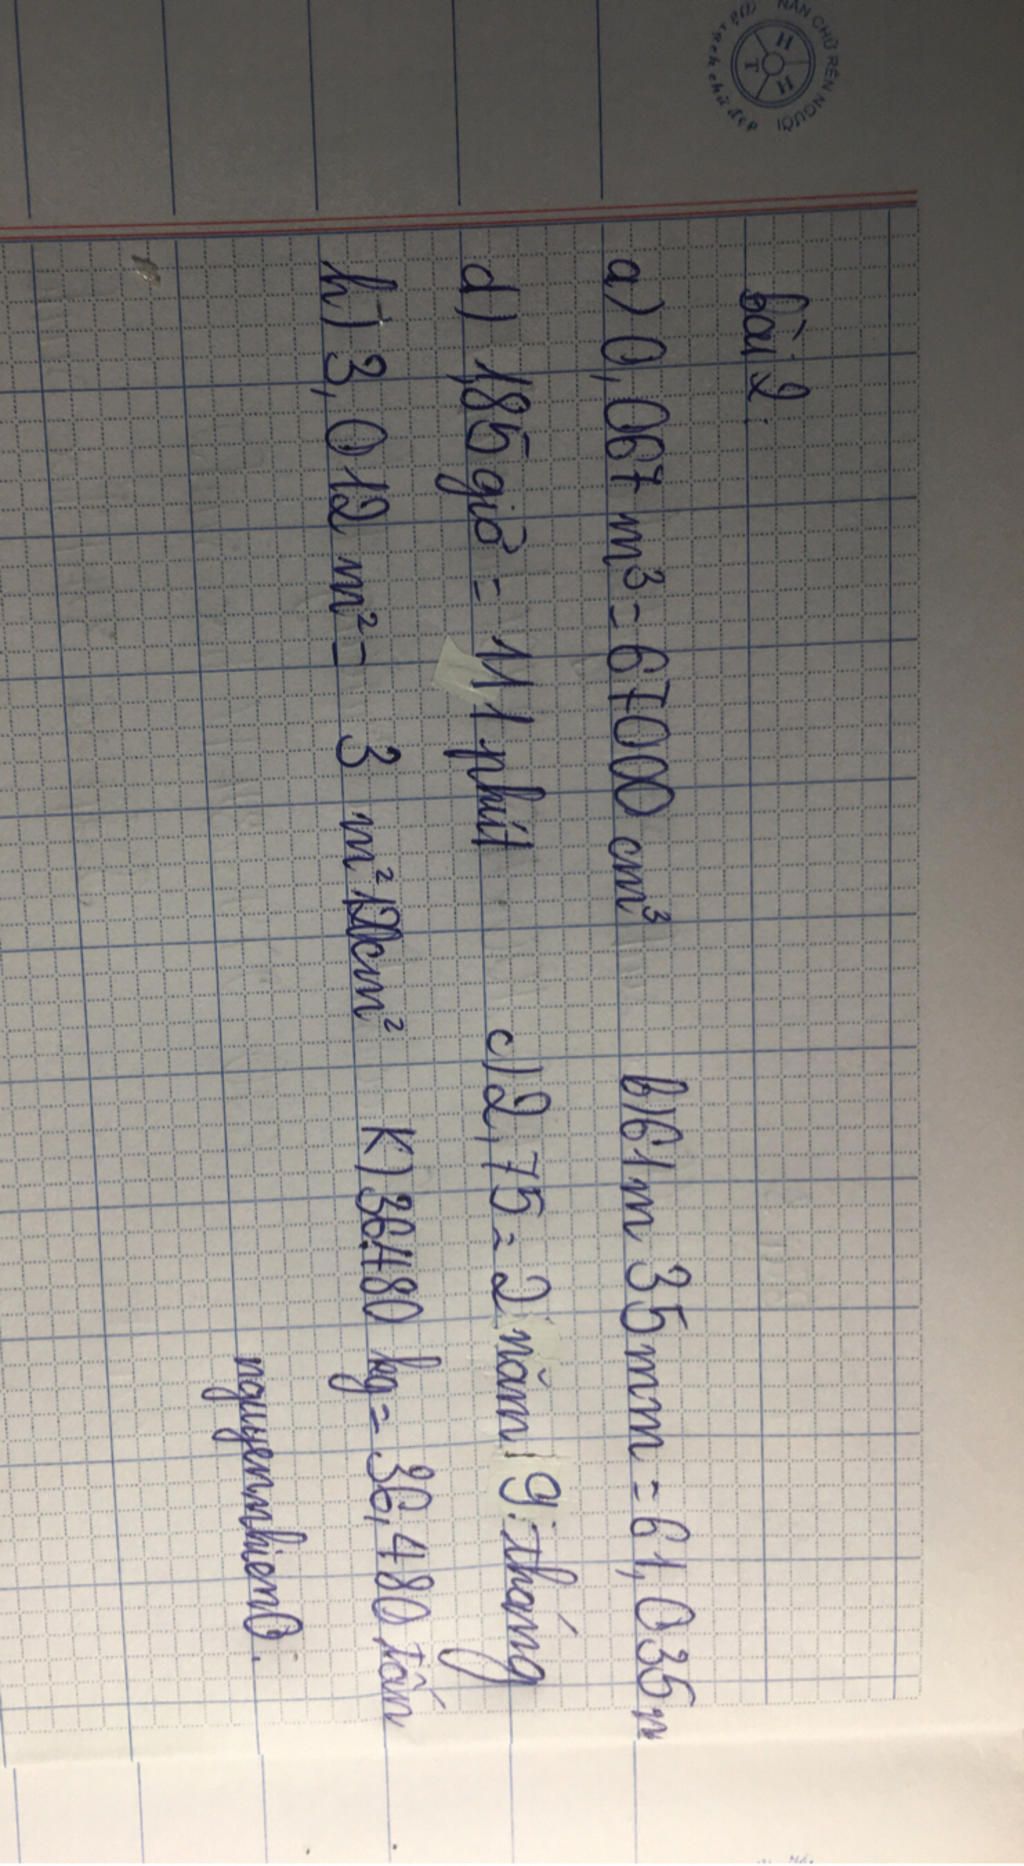 NẮN CHỮ RÈN NGƯỜI
HHT
bài 2:
a) 0,067 m³ = 67000 cm³ b) 61m 35mm = 61,035 m
d) 1,85 giờ = 111 phút c) 2,75 = 2 năm 9 tháng
h) 3,012 m² = 3 m² 120cm² K) 36480 kg = 36,480 tấn
nguyenmhien0.